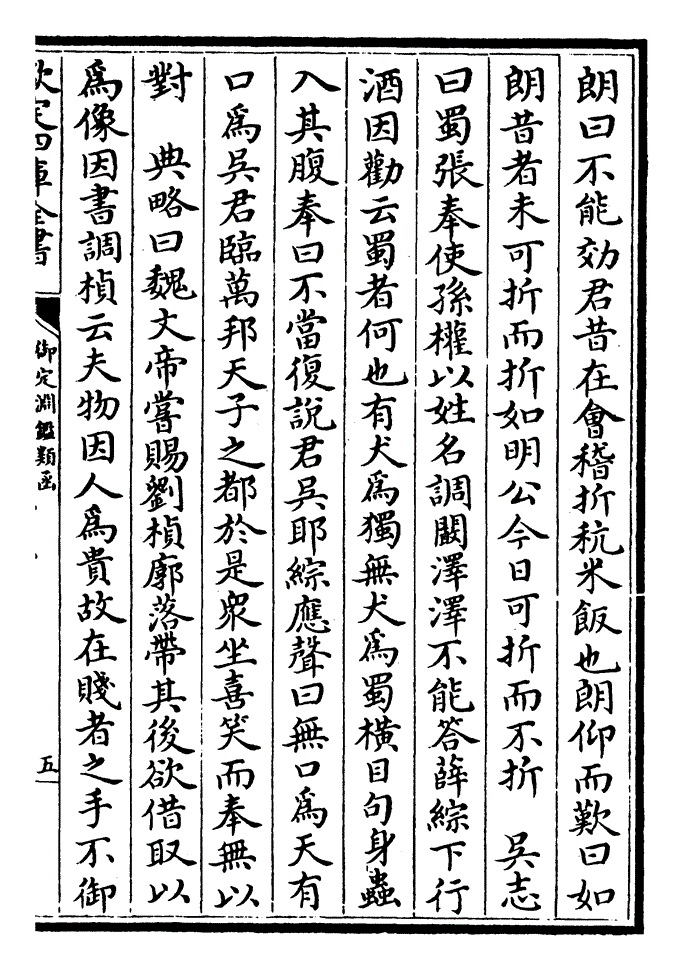 朗曰不能効君昔在會稽折秔米飯也朗仰而歎曰如
朗昔者未可折而折如明公今日可折而不折　吳志
曰蜀張奉使孫權以姓名調闞澤澤不能答薛綜下行
酒因勸云蜀者何也有犬爲獨無犬爲蜀橫目句身蟲
入其腹奉曰不當復說君吳耶綜應聲曰無口爲天有
口爲吳君臨萬邦天子之都於是衆坐喜笑而奉無以
對　典略曰魏文帝嘗賜劉楨廓落帶其後欲借取以
爲像因書調楨云夫物因人爲貴故在賤者之手不御
欽定四庫全書
御定淵鑑類函
五